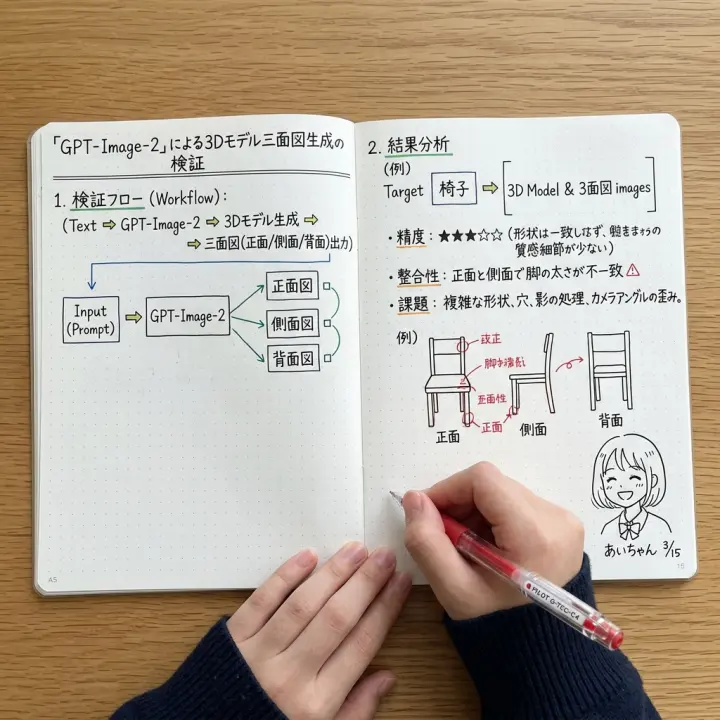 「GPT-Image-2」による3Dモデル三面図生成の
検証
1. 検証フロー (Workflow):
(Text ⇨ GPT-Image-2 ⇨ 3Dモデル生成 ⇨
⇨ 三面図(正面/側面/背面)出力)
Input
(Prompt)
⇨
GPT-Image-2
正面図
側面図
背面図
A5
2. 結果分析
(例)
Target 椅子 ⇨ [3D Model & 3面図 images]
・精度: ★★★☆☆ (形状は一致しはず、
質感細節が少ない)
・整合性: 正面と側面で脚の太さが不一致 ⚠
・課題: 複雑な形状、穴、影の処理、カメラアングルの歪み。
例)
正面
正面
側面
背面
あいちゃん 3/15
15
PILOT G-TEC-C4